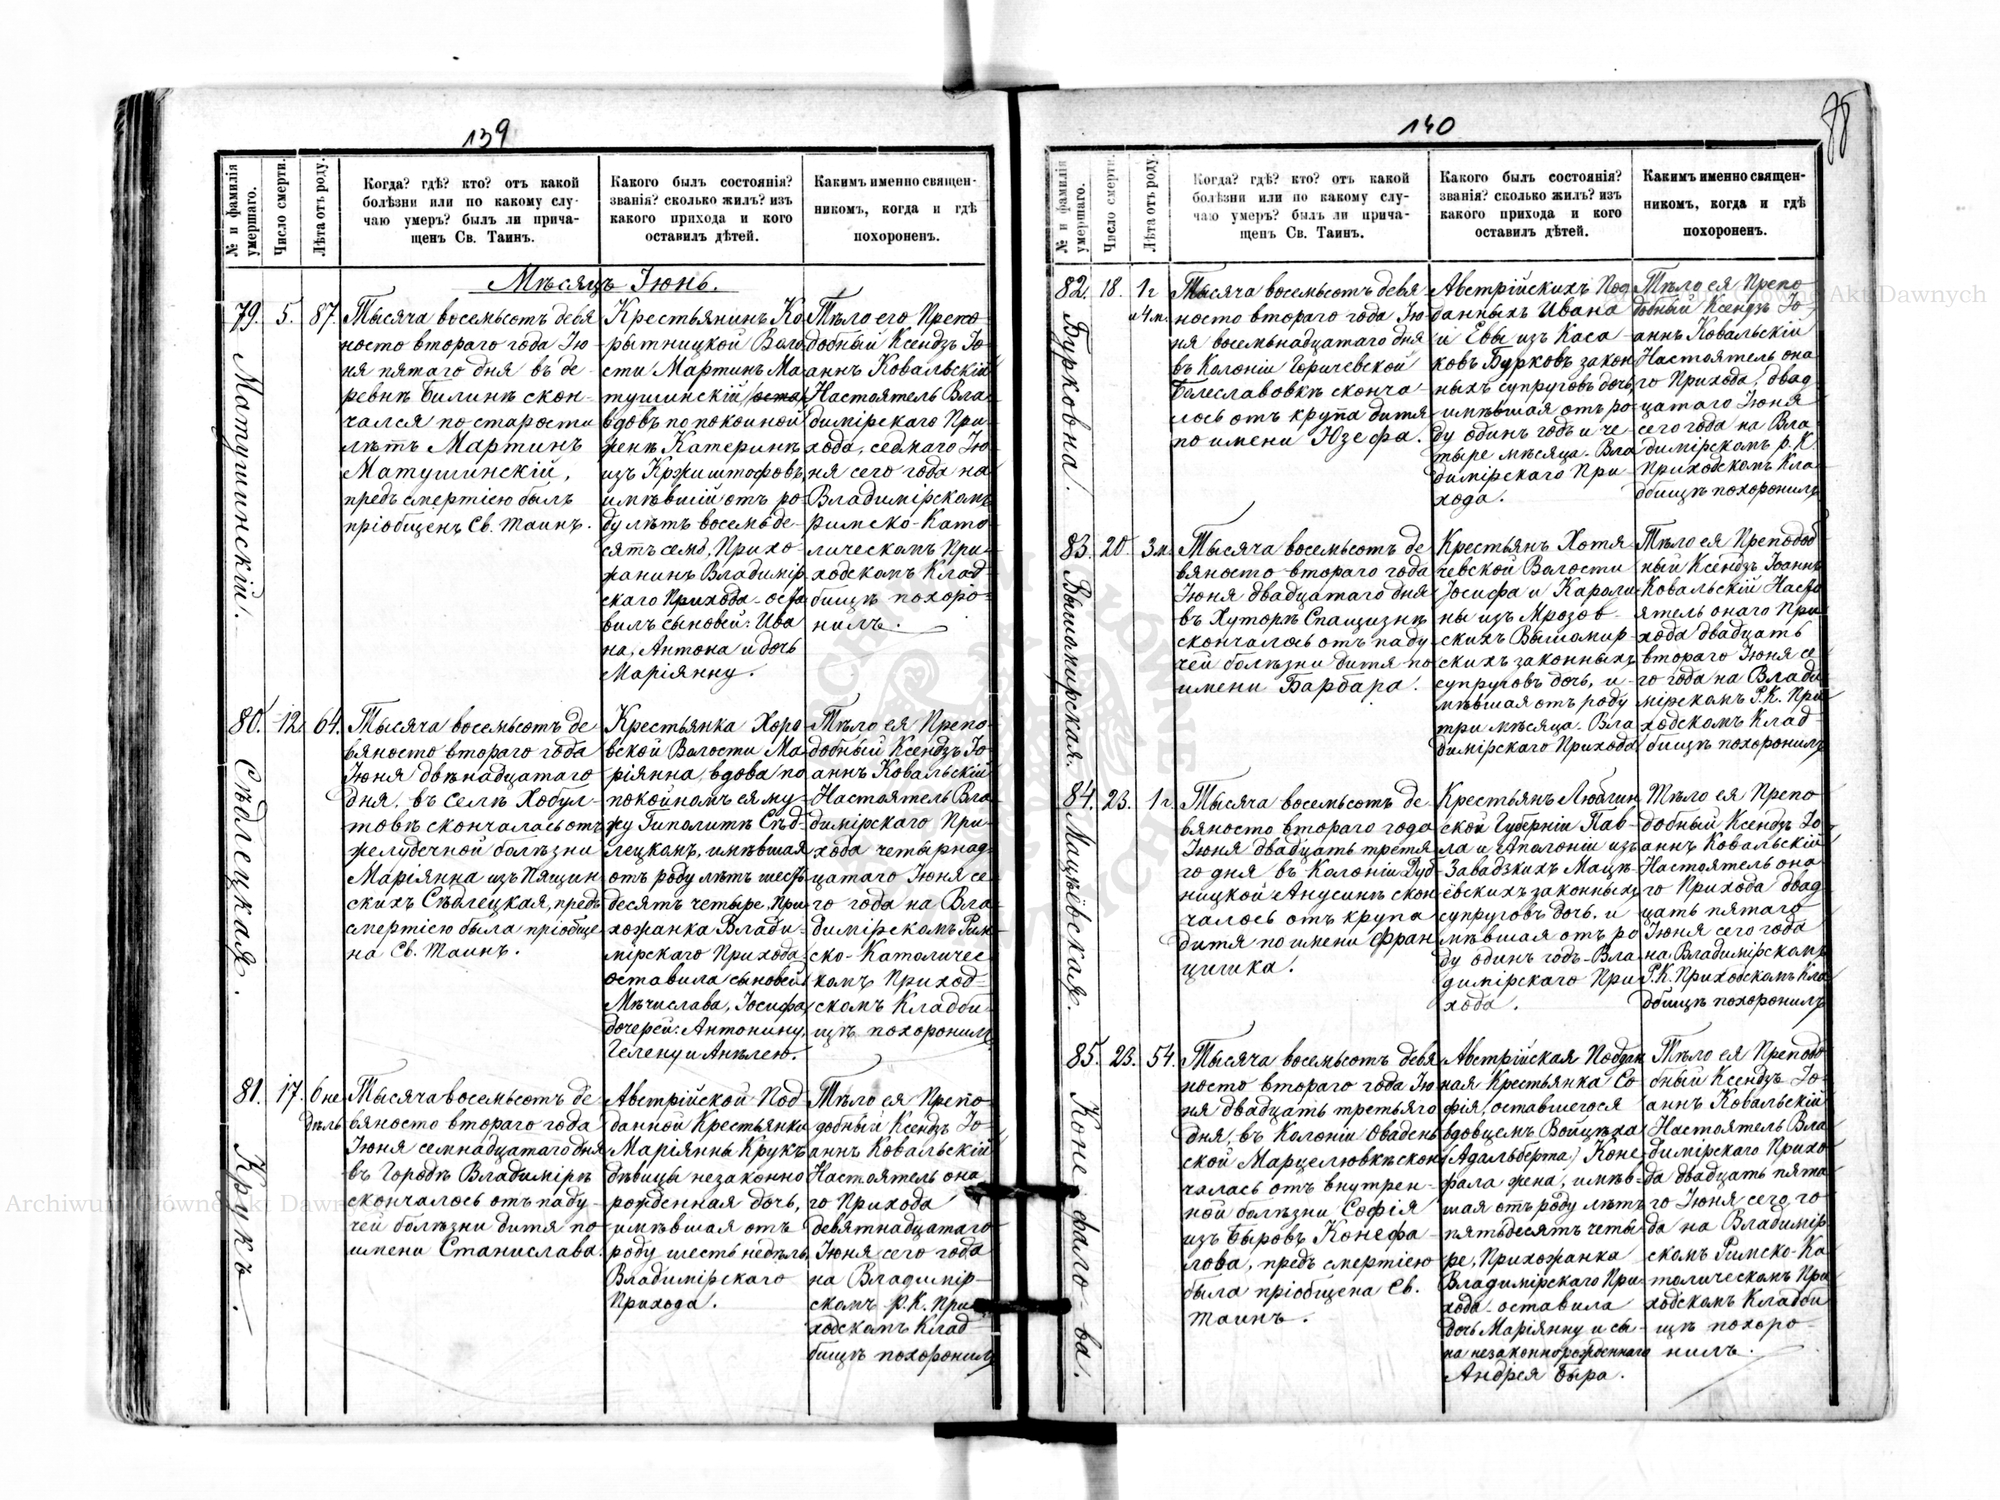 139
№ и фамилія умершаго.
Число смерти.
Лѣта отъ роду.
Когда? гдѣ? кто? отъ какой
болѣзни или по какому слу-
чаю умеръ? былъ ли прича-
щенъ Св. Таинъ.
Какого былъ состоянія?
званія? сколько жилъ? изъ
какого прихода и кого
оставилъ дѣтей.
Какимъ именно священ-
никомъ, когда и гдѣ
похороненъ.
Мѣсяцъ Іюнь.
79.
Матушинскій.
5.
87.
Тысяча восемьсотъ девя
носто втораго года Ію-
ня пятаго дня въ де-
ревнѣ Билинѣ скон-
чался по старости
лѣтъ Мартинъ
Матушинскій,
предъ смертію былъ
пріобщенъ Св. Таинъ.
Крестьянинъ Ко
рытницкой Воло
сти Мартинъ Ма
тушинскій
вдовъ по покойной
женѣ Катеринѣ
изъ Кржиштофовъ,
имѣвшій отъ ро-
ду лѣтъ восемьде-
сятъ семь, Прихо-
жанинъ Владимір
скаго Прихода оста
вилъ сыновей: Ива
на, Антона и дочь
Маріянну.
Тѣло его Препо-
добный Ксендзъ Іо-
аннъ Ковальскій
Настоятель Вла
димірскаго При-
хода, седмаго Ію-
ня сего года на
Владимірскомъ
Римско-Като-
лическомъ При-
ходскомъ Клад-
бищѣ похоро-
нилъ.
80.
Сѣдлецкая.
12.
64.
Тысяча восемьсотъ де-
вяносто втораго года
Іюня двѣнадцатаго
дня, въ селѣ Хобул-
товѣ скончалась отъ
желудочной болѣзни
Маріянна изъ Пящин
скихъ Сѣдлецкая, предъ
смертію была пріобще
на Св. Таинъ.
Крестьянка Хоро
вской Волости Ма
ріянна, вдова по
покойномъ ея му-
жу Гиполитѣ Сѣд-
лецкомъ, имѣвшая
отъ роду лѣтъ шесть
десятъ четыре, При
хожанка Влади-
мірскаго Прихода
оставила сыновей
Мѣчислава, Іосифа,
дочерей: Антонину,
Гелену и Анѣлею.
Тѣло ея Препо-
добный Ксендзъ Іо
аннъ Ковальскій
Настоятель Вла
димірскаго При-
хода четырнад-
цатаго Іюня се-
го года на Вла-
димірскомъ Рим-
ско-Католичес
комъ Приход-
скомъ Кладби-
щѣ похоронилъ.
81.
Крукъ.
17.
6 не
дѣль
Тысяча восемьсотъ де
вяносто втораго года
Іюня семнадцатаго дня
въ Городѣ Владимірѣ
скончалось отъ паду-
чей болѣзни дитя по
имени Станислава.
Австрійской Под
данной Крестьянки
Маріянны Крукъ
дѣвицы незаконно
рожденная дочь,
имѣвшая отъ
роду шесть недѣль
Владимірскаго
Прихода.
Тѣло ея Препо-
добный Ксендзъ Іо-
аннъ Ковальскій
Настоятель она
го Прихода
девятнадцатаго
Іюня сего года
на Владимір-
скомъ Р.К. При-
ходскомъ Клад-
бищѣ похоронилъ
140
№ и фамилія умершаго.
Число смерти.
Лѣта отъ роду.
Когда? гдѣ? кто? отъ какой
болѣзни или по какому слу-
чаю умеръ? былъ ли прича-
щенъ Св. Таинъ.
Какого былъ состоянія?
званія? сколько жилъ? изъ
какого прихода и кого
оставилъ дѣтей.
Какимъ именно священ-
никомъ, когда и гдѣ
похороненъ.
82.
Буркована.
18.
1 г
и 4 м.
Тысяча восемьсотъ девя-
носто втораго года Ію-
ня восемьнадцатаго дня
въ Колоніи Горичевской
Болеславовкѣ сконча-
лось отъ крупа дитя
по имени Юзефа.
Австрійскихъ Под
данныхъ Ивана
и Евы изъ Каса
ковъ Бурковъ закон
ныхъ супруговъ дочь
имѣвшая отъ ро-
ду одинъ годъ и че
тыре мѣсяца. Вла
димірскаго При
хода.
Тѣло ея Препо
добный Ксендзъ Іо-
аннъ Ковальскій
Настоятель она
го Прихода, двад
цатаго Іюня
сего года на Вла-
димірскомъ Р.К.
Приходскомъ Кла-
дбищѣ похоронилъ
83.
Вышомирская.
20
3 м.
Тысяча восемьсотъ де
вяносто втораго года
Іюня двадцатаго дня
въ Хуторѣ Спащизнѣ
скончалось отъ паду
чей болѣзни дитя по
имени Барбара.
Крестьянъ Хотя
чевской Волости
Іосифа и Кароли
ны изъ Мрозов-
скихъ Вышомир-
скихъ законныхъ
супруговъ дочь, и-
мѣвшая отъ роду
три мѣсяца. Вла
димірскаго Прихода
Тѣло ея Преподоб
ный Ксендзъ Іоаннъ
Ковальскій Насто
ятель онаго При
хода двадцать
втораго Іюня се-
го года на Влади
мірскомъ Р.К. При
ходскомъ Клад
бищѣ похоронилъ
84.
Мацѣёвская.
23.
1 г.
Тысяча восемьсотъ де-
вяносто втораго года
Іюня двадцать третья
го дня въ Колоніи Дуб
ницкой Анусинѣ скон
чалось отъ крупа
дитя по имени Фран
цишка.
Крестьянъ Люблин
ской Губерніи Пав-
ла и Аполоніи изъ
Завадзкихъ Мацѣ-
ёвскихъ законныхъ
супруговъ дочь, и
мѣвшая отъ ро
ду одинъ годъ-Вла
димірскаго При
хода.
Тѣло ея Препо
добный Ксендзъ Іо-
аннъ Ковальскій
Настоятель она-
го Прихода двад
цать пятаго
Іюня сего года
на Владимірскомъ
Р.К. Приходскомъ Кла
дбищѣ похоронилъ
85.
Конефалова.
23.
54.
Тысяча восемьсотъ девя
носто втораго года Ію
ня двадцать третьяго
дня, въ Колоніи Овадень
ской Марцелювкѣ скон
чалась отъ внутрен-
ной болѣзни Софія
изъ Быровъ Конефа-
лова, предъ смертію
была пріобщена Св.
Таинъ.
Австрійская Поддан
ная Крестьянка Со
фія, оставшегося
вдовцемъ Войцѣха
(Адальберта) Коне
фала жена, имѣв-
шая отъ роду лѣтъ
пятьдесятъ четы-
ре, Прихожанка
Владимірскаго При-
хода. оставила
дочь Маріянну и сы-
на незаконнорожденнаго
Андрея Быра.
Тѣло ея Преподо
бный Ксендзъ Іо-
аннъ Ковальскій
Настоятель Вла
димірскаго Прихо-
да двадцать пята-
го Іюня сего го-
да на Владимір
скомъ Римско-Ка
толическомъ При
ходскомъ Кладби
щѣ похоро-
нилъ.
Archiwum Główne Akt Dawnych
Archiwum Główne Akt Dawnych